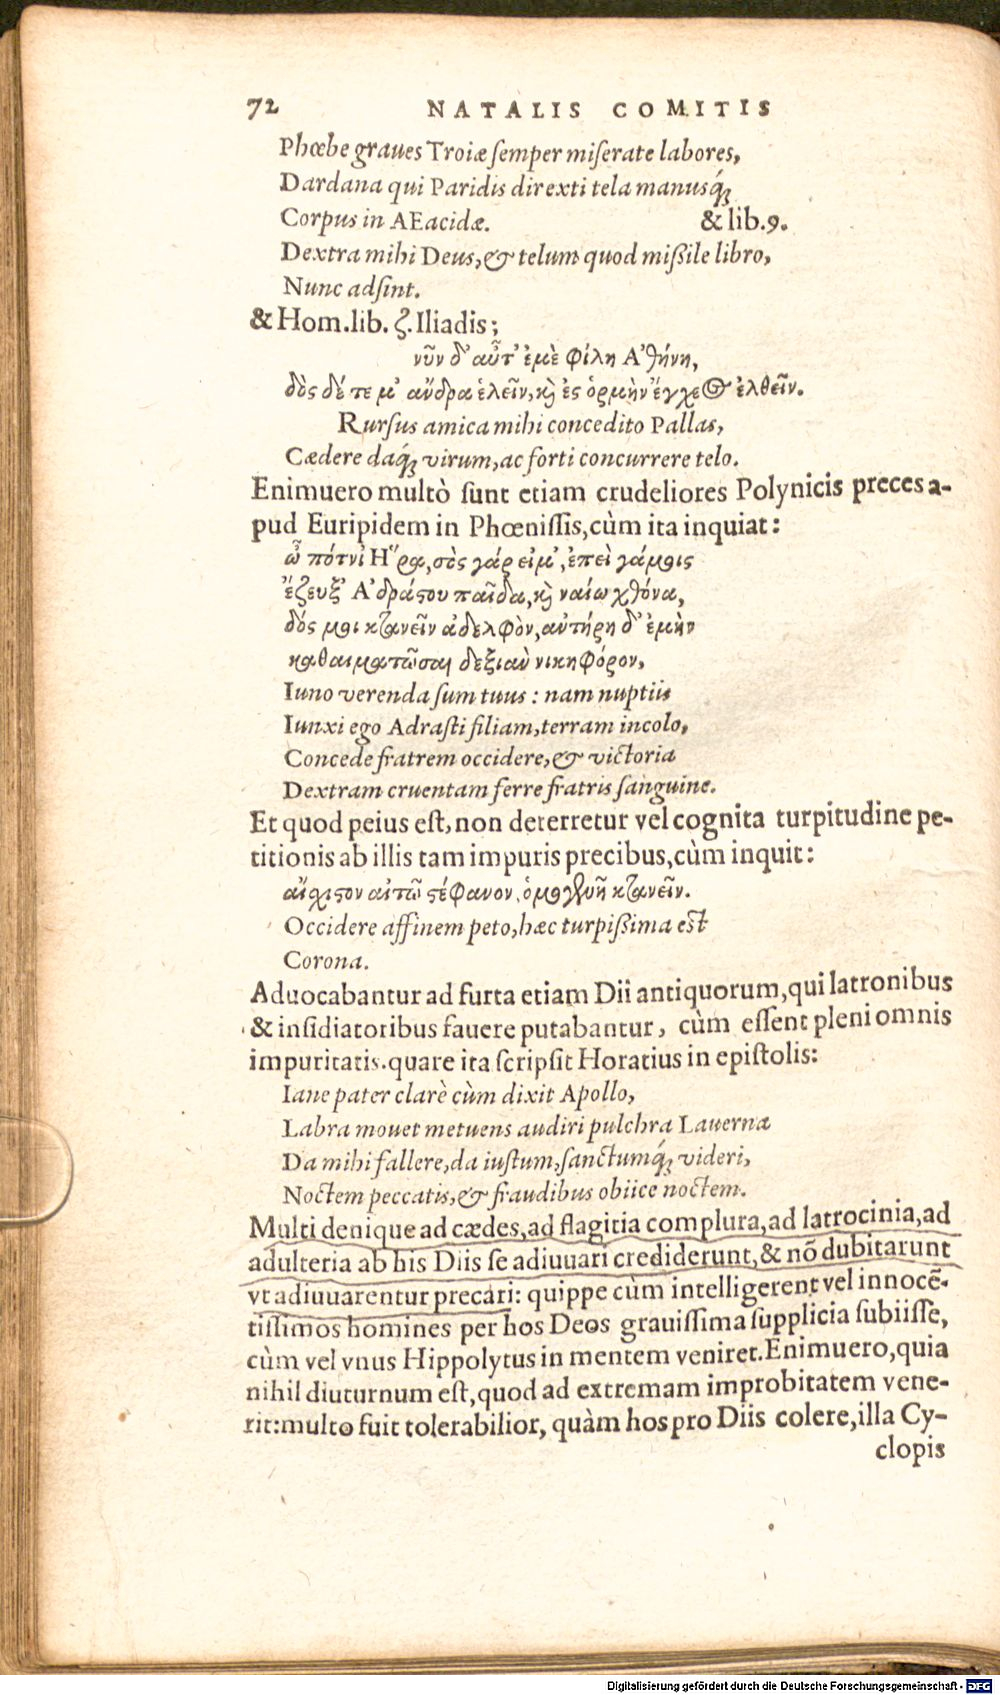 72 NATALIS COMITIS
Phœbe graues Troiæ ſemper miſerate labores,
Dardana qui Paridis direxti tela manusq́;
Corpus in AEacidæ. & lib.9.
Dextra mihi Deus, & telum quod miſsile libro,
Nunc adſint.
& Hom.lib. ζ. Iliadis;
νῦν δ' αὖτ' ἐμὲ φίλη Α'θήνη,
δὸς δέ τε μ' ἄνδρα ἑλεῖν, κὶ ἐς ὁρμὴν ἔγχεος ἐλθεῖν.
Rurſus amica mihi concedito Pallas,
Cædere daq́; virum, ac forti concurrere telo.
Enimuero multò ſunt etiam crudeliores Polynicis preces a-
pud Euripidem in Phœniſſis, cùm ita inquiat:
ὦ πότνι Η῞ρα, σὸς γάρ εἰμ', ἐπεὶ γάμοις
ἔζευξ' Α'δράςου παῖδα, κὶ ναίω χθόνα,
δός μοι κτανεῖν ἀδελφὸν, αὐτήρη δ' ἐμὴν
καθαιματῶσαι δεξιαὺ νικηφόρον,
Iuno verenda ſum tuus: nam nuptiis
Iunxi ego Adraſti filiam, terram incolo,
Concede fratrem occidere, & victoria
Dextram cruentam ferre fratris ſanguine.
Et quod peius eſt, non deterretur vel cognita turpitudine pe-
titionis ab illis tam impuris precibus, cùm inquit:
αἴχιςον αἰτῶ ςέφανον, ὁμογυῆ κτανεῖν.
Occidere affinem peto, hæc turpiſsima eſt
Corona.
Aduocabantur ad furta etiam Dii antiquorum, qui latronibus
& inſidiatoribus fauere putabantur, cùm eſſent pleni omnis
impuritatis. quare ita ſcripſit Horatius in epiſtolis:
Iane pater clarè cùm dixit Apollo,
Labra mouet metuens audiri pulchra Lauerna
Da mihi fallere, da iuſtum, ſanctumq́; videri,
Noctem peccatis, & fraudibus obiice noctem.
Multi denique ad cædes, ad flagitia complura, ad latrocinia, ad
adulteria ab his Diis ſe adiuuari crediderunt, & nõ dubitarunt
vt adiuuarentur precari: quippe cùm intelligerent vel innocẽ-
tiſſimos homines per hos Deos grauiſſima ſupplicia ſubiiſſe,
cùm vel vnus Hippolytus in mentem veniret. Enimuero, quia
nihil diuturnum eſt, quod ad extremam improbitatem vene-
rit: multo fuit tolerabilior, quàm hos pro Diis colere, illa Cy-
clopis
Digitalisierung gefördert durch die Deutsche Forschungsgemeinschaft - DFG